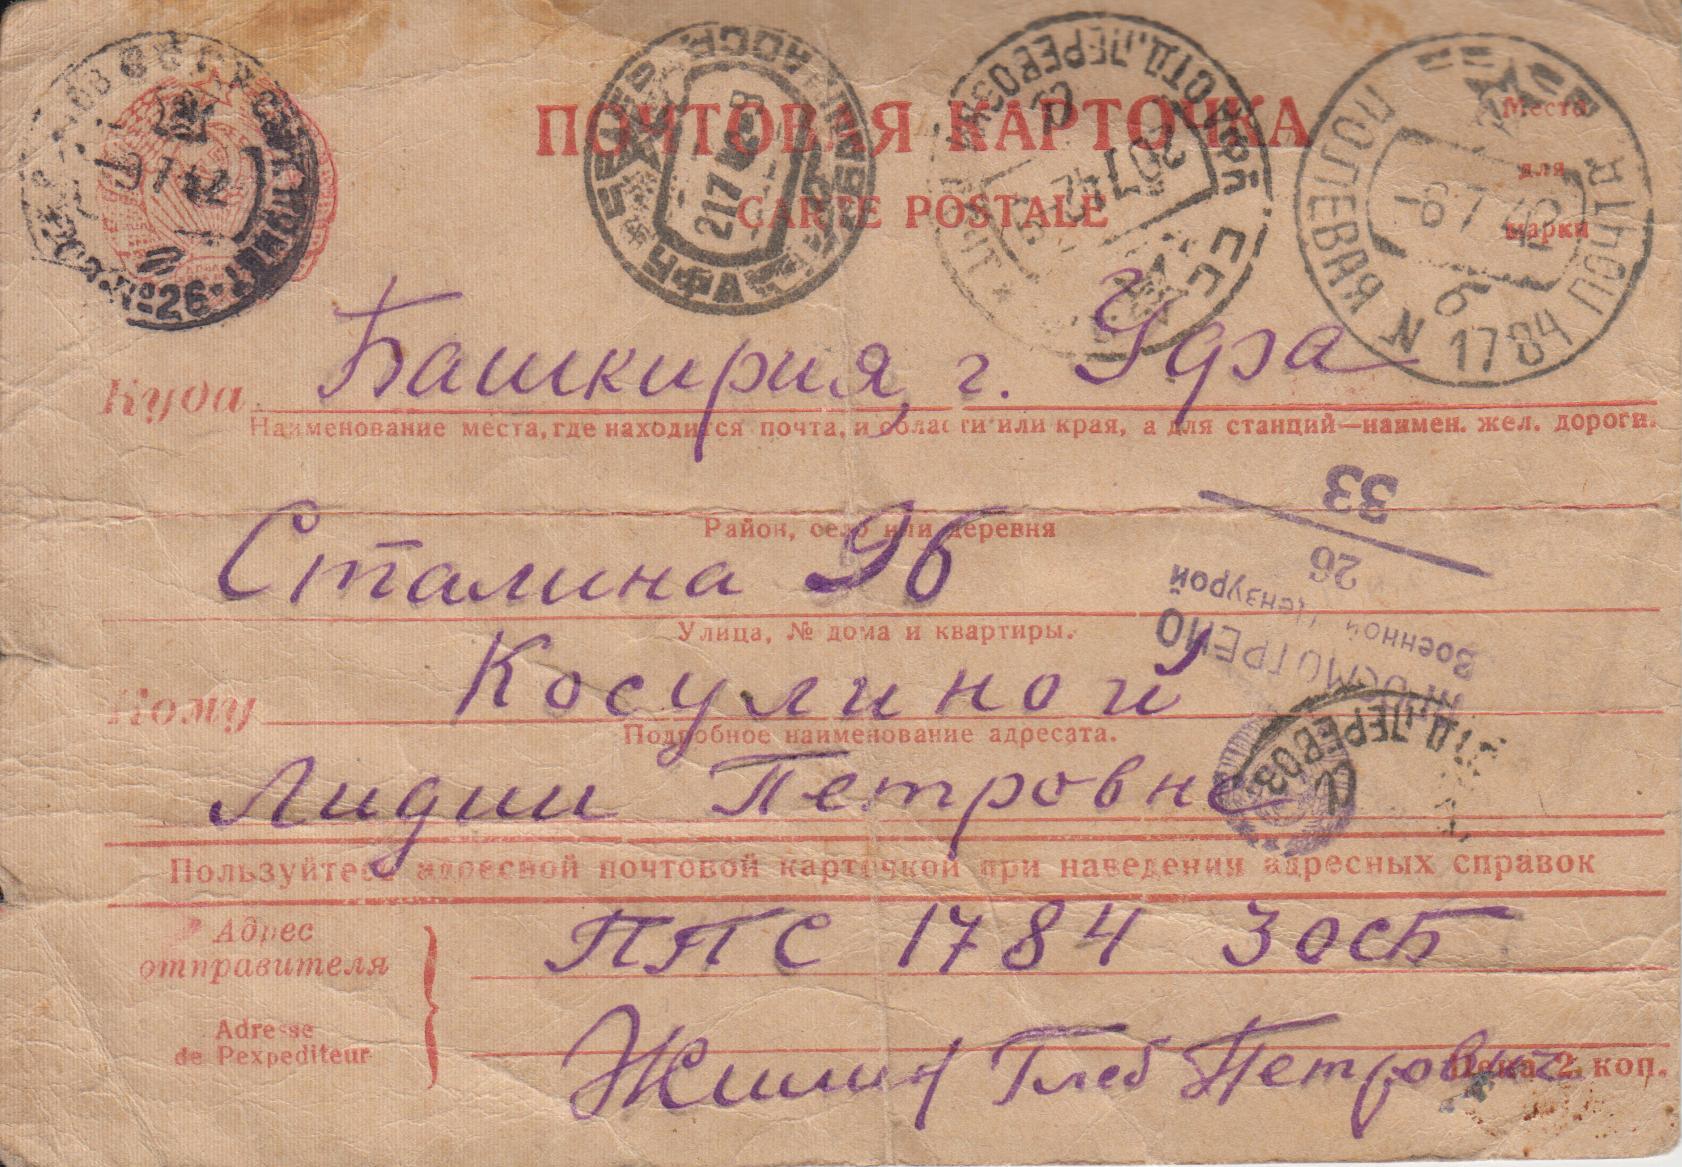 ПОЧТОВАЯ КАРТОЧКА
CARTE POSTALE
Место
для
марки
УФА
217
ОТД. ПЕРЕВОЗКИ
20 7 42
ПОЛЕВАЯ ПОЧТА
-6 7 42
б
N 1784
№26
Куда Башкирия, г. Уфа
Наименование места, где находится почта, и области или края, а для станций—наимен. жел. дороги.
Район, село или деревня
Сталина 96
Улица, № дома и квартиры.
Кому Косулиной
Подробное наименование адресата.
Лидии Петровне
ПРОСМОТРЕНО
Военной Цензурой
26
33
ОТД. ПЕРЕВОЗ
Пользуйтесь адресной почтовой карточкой при наведении адресных справок
Адрес
отправителя
ППС 1784 ЗОСБ
Adresse
de l'expediteur
Жилин Глеб Петрович
Цена 2 коп.